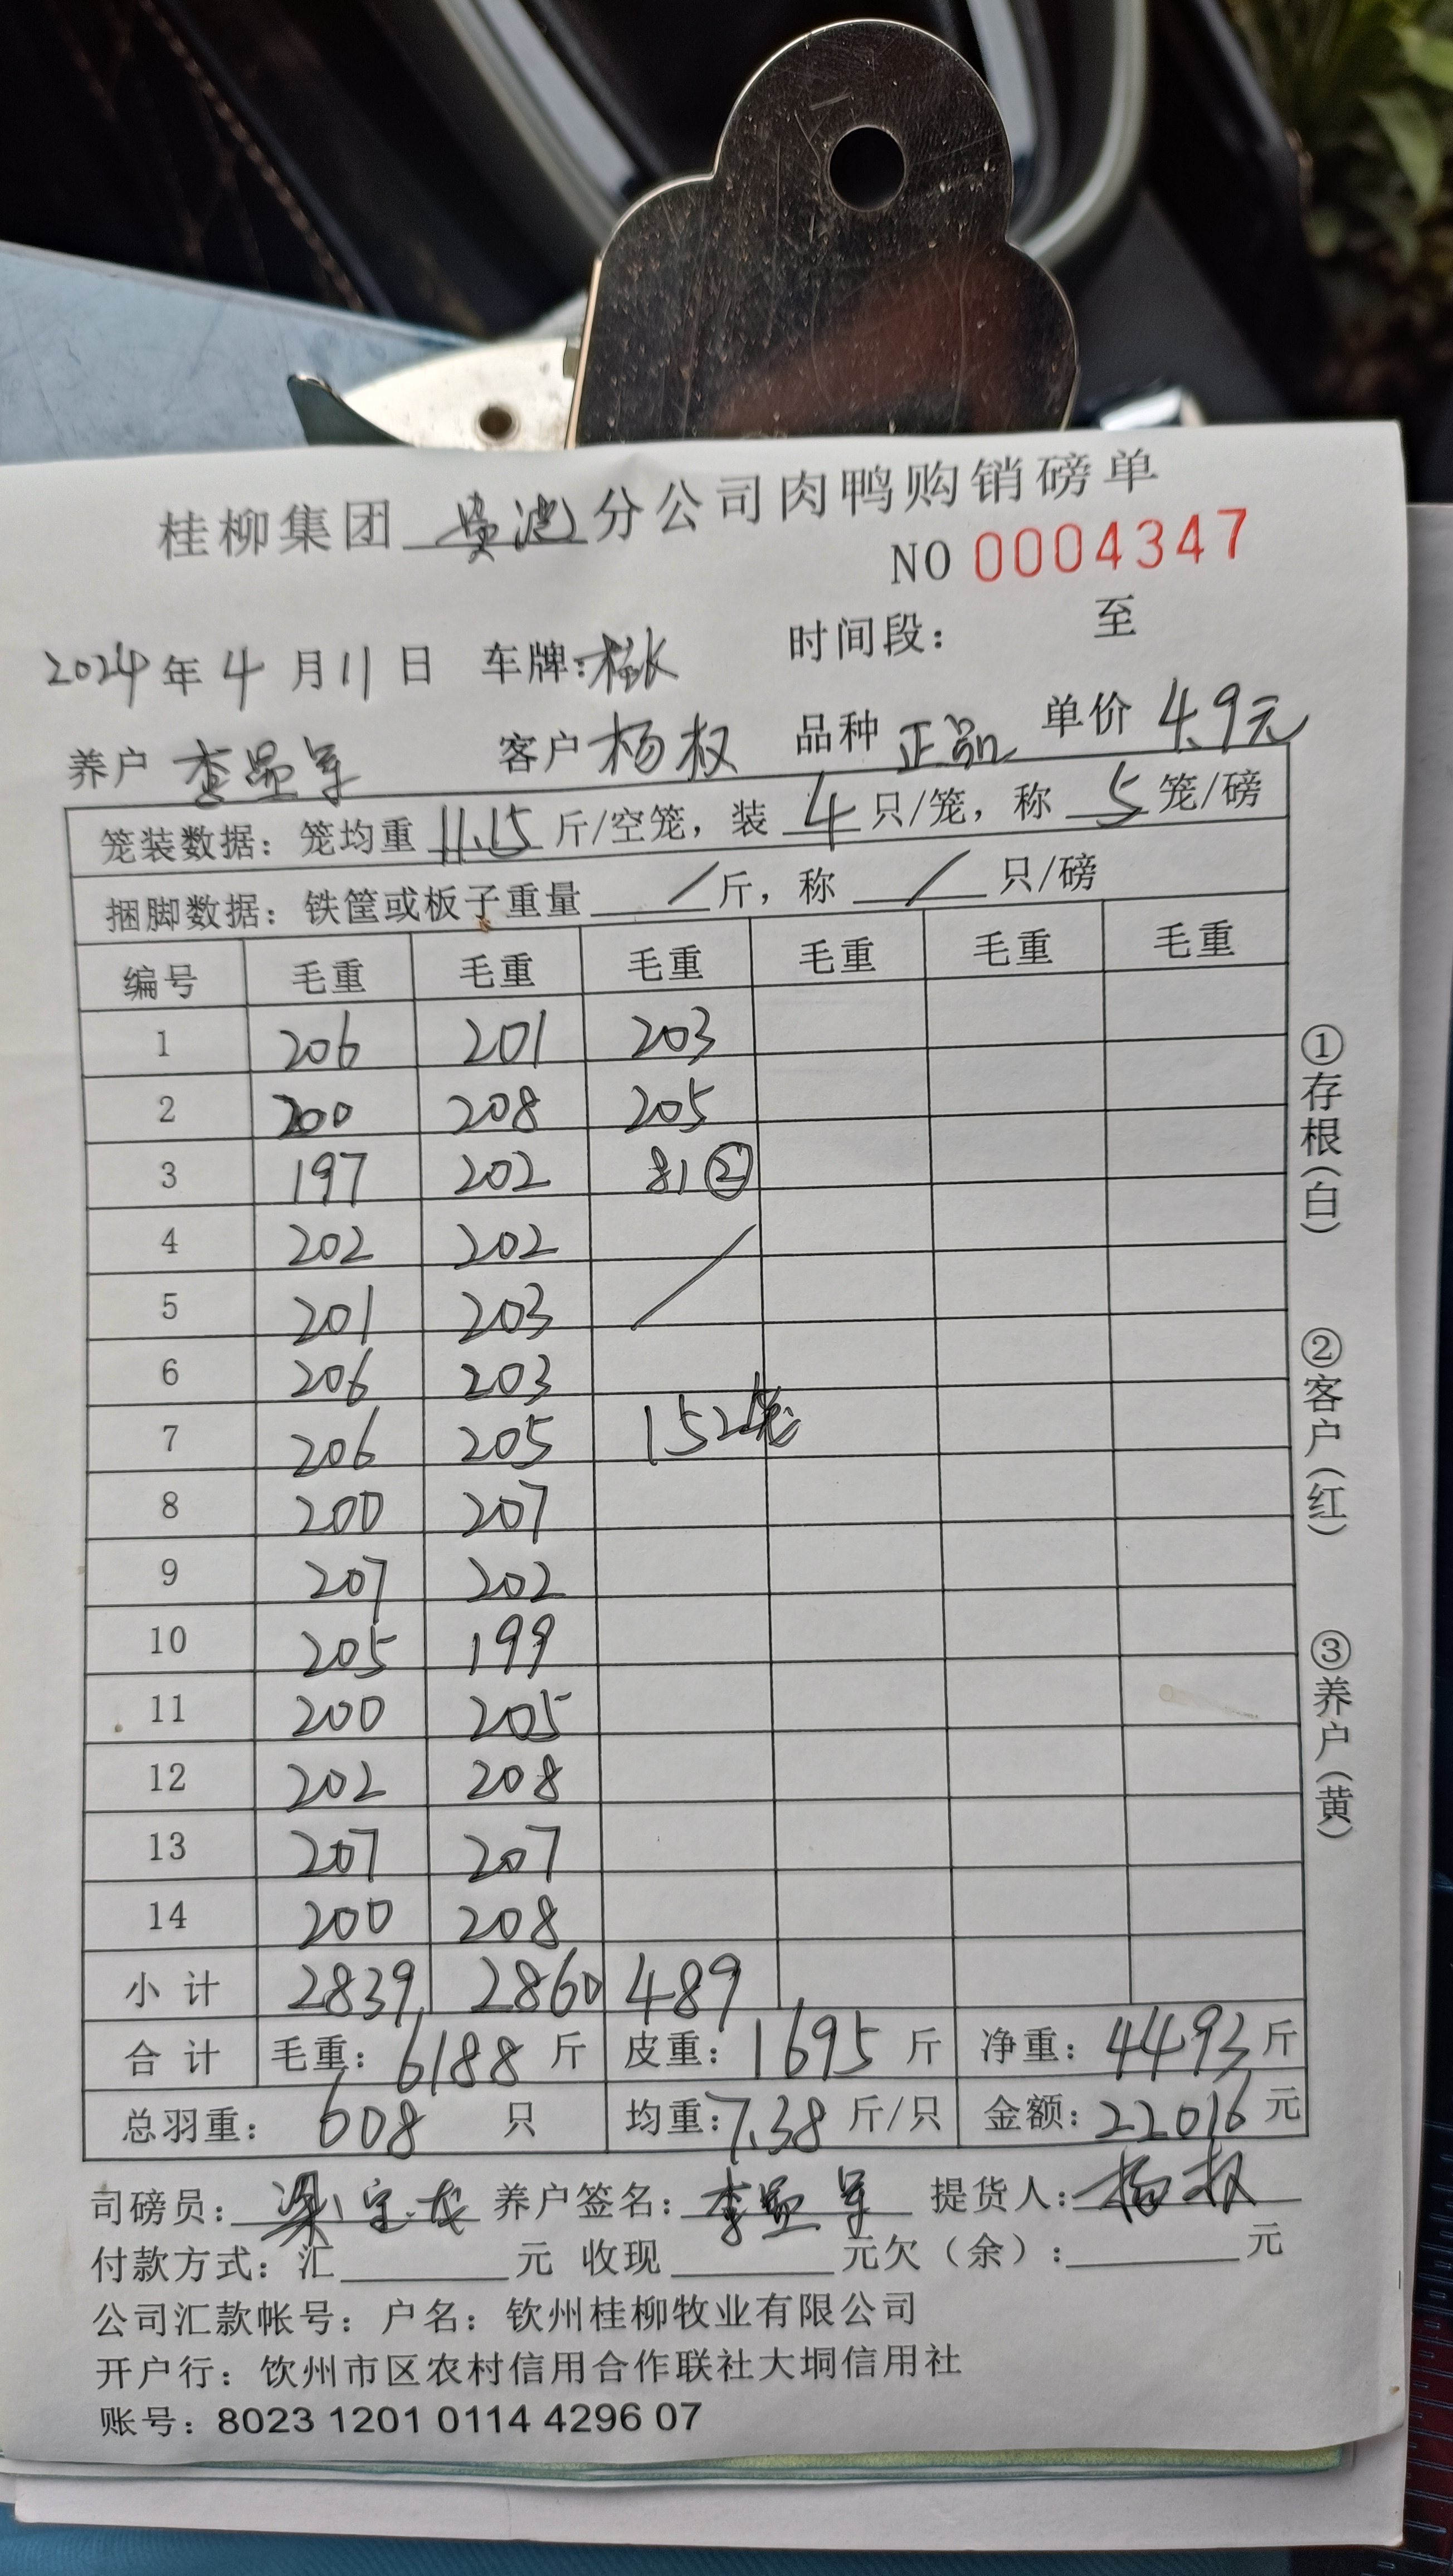 桂柳集团 黄 分公司肉鸭购销磅单
NO 0004347
2024年 4 月 11 日 车牌: 时间段: 至
养户 李显军 客户 杨权 品种 正品 单价 4.9元
笼装数据: 笼均重 11.15 斤/空笼, 装 4 只/笼, 称 5 笼/磅
捆脚数据: 铁筐或板子重量 / 斤, 称 / 只/磅
编号 毛重 毛重 毛重 毛重 毛重 毛重
1 206 201 203
2 200 208 205
3 197 202 81 ②
4 202 202 /
5 201 203
6 206 203
7 206 205 152笼
8 200 207
9 207 202
10 205 199
11 200 205
12 202 208
13 207 207
14 200 208
小 计 2839 2860 489
合 计 毛重: 6188 斤 皮重: 1695 斤 净重: 4493 斤
总羽重: 608 只 均重: 7.38 斤/只 金额: 22016 元
司磅员: 梁 养户签名: 李显军 提货人: 杨权
付款方式: 汇 元 收现 元欠(余): 元
公司汇款帐号: 户名: 钦州桂柳牧业有限公司
开户行: 钦州市区农村信用合作联社大垌信用社
账号: 8023 1201 0114 4296 07
①存根(白)
②客户(红)
③养户(黄)